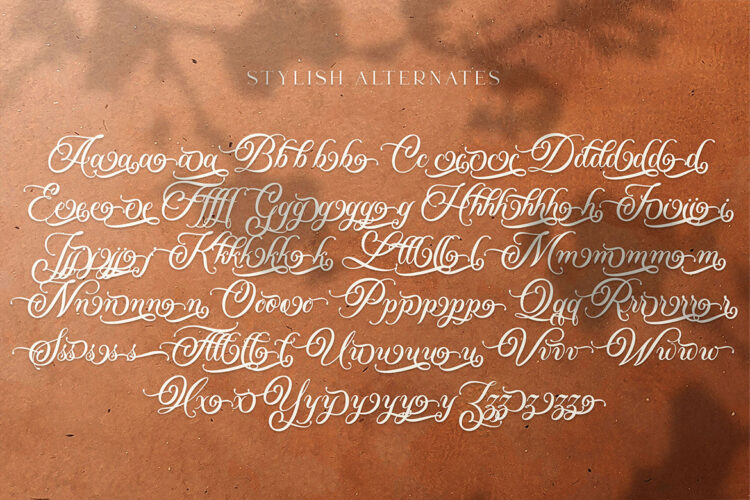 STYLISH ALTERNATES
Aaaaaaa Bbbbbb Ccccccc Ddddddd
Eeeeeee Fffff Ggggggg Hhhhhhh Iiiii
Jjjjj Kkkkkkk Llllll Mmmmmm
Nnnnnnn Oooooo Ppppppp Qqqq Rrrrrrr
Ssssss Tttttt Uuuuuuu Vvvv Wwww
Xxxx Yyyyyyy Zzzzzzz